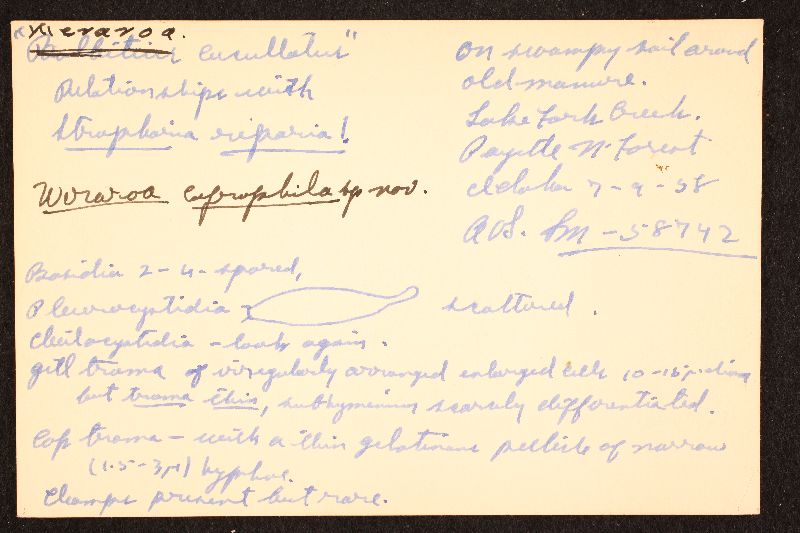 "Weraroa.
Bolbitius cucullatus"
Relationships with
Stropharia riparia!
Weraroa coprophila sp nov.
On swampy soil around
old manure.
Lake Fork Creek.
Payette N. Forest
Idaho 7-9-58
AHS. Sm-58742
Basidia 2-4-spored,
Pleurocystidia scattered.
Cheilocystidia - look again.
gill trama of irregularly arranged enlarged cells 10-15µ diam
but trama thin, subhymenium scarsely differentiated.
Cap trama - with a thin gelatinous pellicle of narrow
(1.5-3µ) hyphae.
Clamps present but rare.